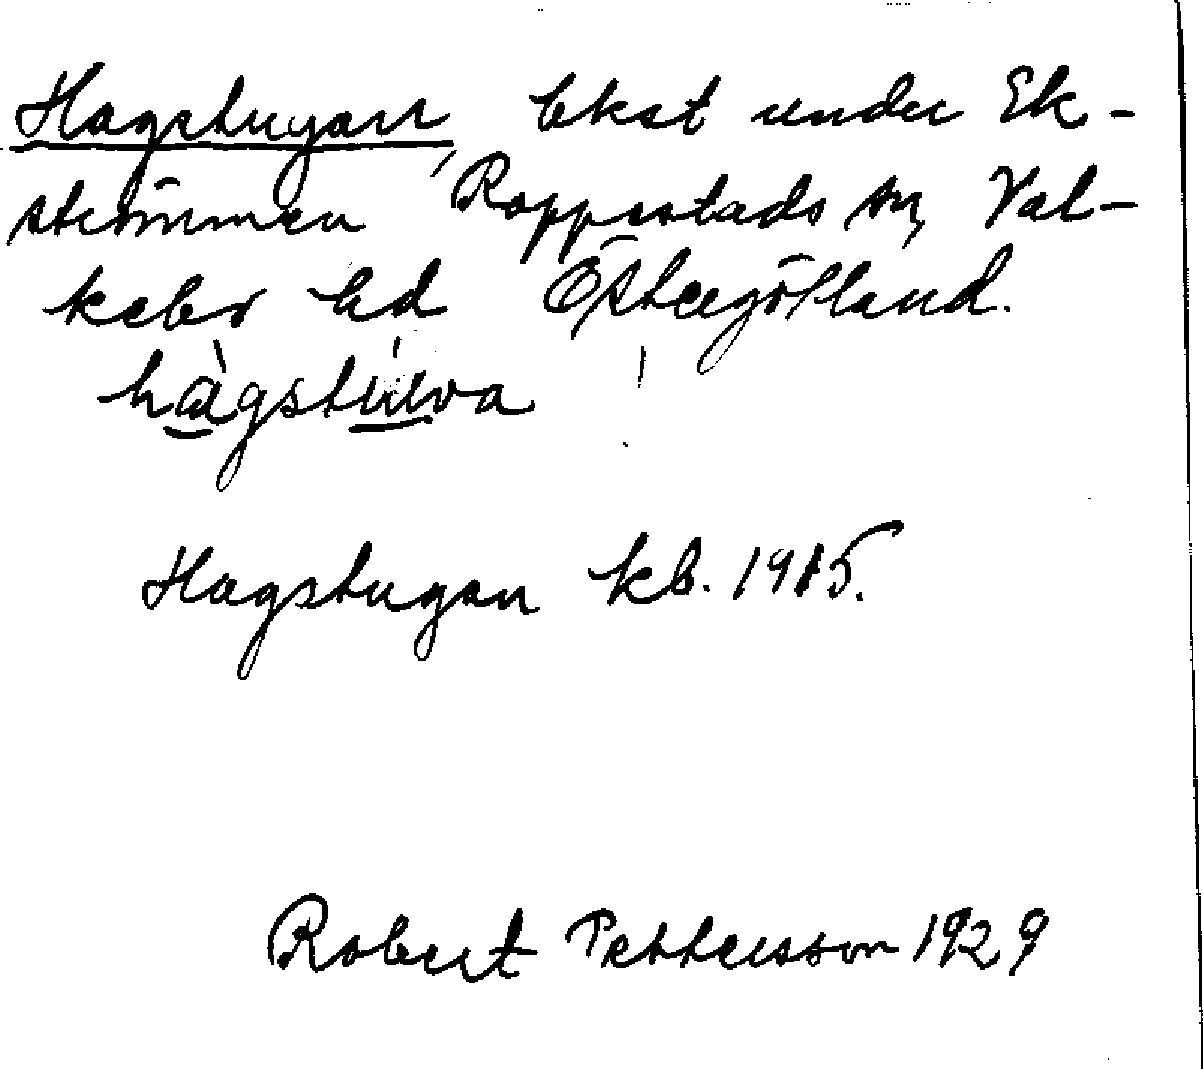 Hagstugan, bkst under Ek-
strömmen Rappestads sn, Val-
kebo hd Östergötland.
hàgstúwa
Hagstugan kb. 1915.
Robert Pettersson 1929